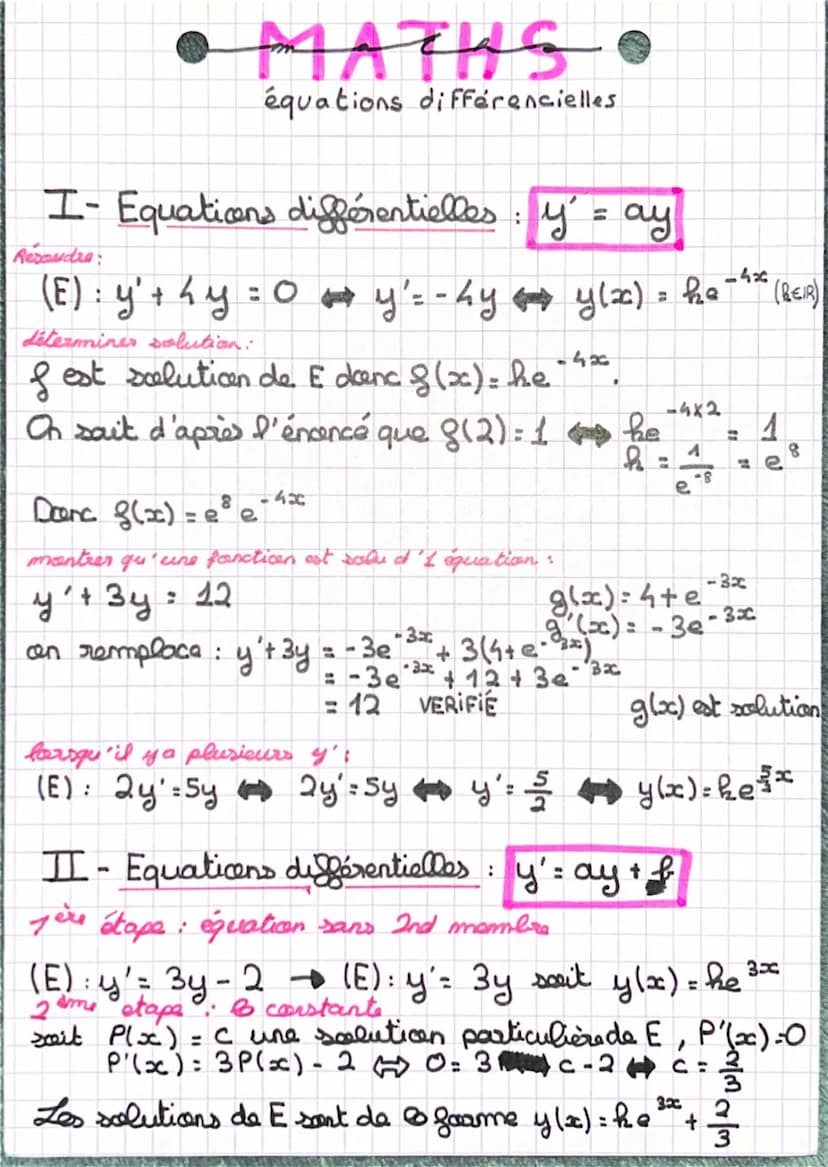 MATHS
maths
équations différencielles
I - Equations différentielles : y' = ay
Résoudre :
(E) : y' + 4y = 0 ⇔ y' = -4y ⇔ y(x) = ke^{-4x} (k∈ℝ)
déterminer solution :
f est solution de E donc f(x) = ke^{-4x}.
On sait d'après l'énoncé que f(2) = 1 ⇔ ke^{-4×2} = 1
k = 1/e^{-8} = e^8
Donc f(x) = e^8 e^{-4x}
montrer qu'une fonction est solu d'1 équation :
y' + 3y = 12 g(x) = 4 + e^{-3x}
g'(x) = -3e^{-3x}
on remplace : y' + 3y = -3e^{-3x} + 3(4 + e^{-3x})
= -3e^{-3x} + 12 + 3e^{-3x}
= 12 VERIFIÉ g(x) est solution
lorsqu'il y a plusieurs y' :
(E) : 2y' = 5y ⇔ 2y' = 5y ⇔ y' = 5/2 ⇔ y(x) = ke^{5/2 x}
II - Equations différentielles : y' = ay + f
1ère étape : équation sans 2nd membre
(E) : y' = 3y - 2 → (E) : y' = 3y soit y(x) = ke^{3x}
2ème etape : la constante
soit P(x) = c une solution particulière de E, P'(x) = 0
P'(x) = 3P(x) - 2 ⇔ 0 = 3 c - 2 ⇔ c = 2/3
Les solutions de E sont de la forme y(x) = ke^{3x} + 2/3